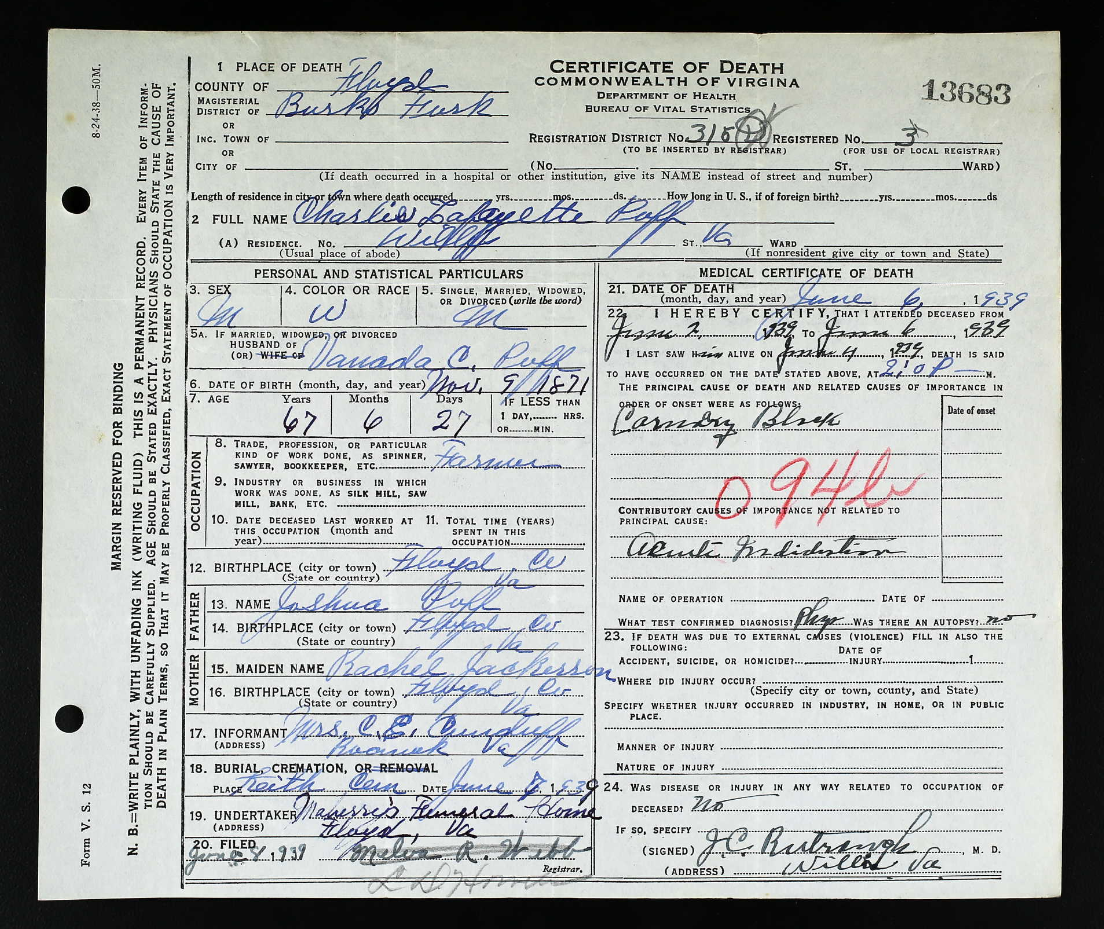 1 PLACE OF DEATH
COUNTY OF Floyd
MAGISTERIAL DISTRICT OF Burks Furk
OR
INC. TOWN OF
OR
CITY OF
CERTIFICATE OF DEATH
COMMONWEALTH OF VIRGINA
DEPARTMENT OF HEALTH
BUREAU OF VITAL STATISTICS
13683
REGISTRATION DISTRICT NO. 315 D REGISTERED NO. 3
(TO BE INSERTED BY REGISTRAR) (FOR USE OF LOCAL REGISTRAR)
(No. ST. WARD)
(If death occurred in a hospital or other institution, give its NAME instead of street and number)
Length of residence in city or town where death occurred yrs. mos. ds. How long in U. S., if of foreign birth? yrs. mos. ds
2 FULL NAME Charlie Lafayette Poff
(A) RESIDENCE. No. ST. Va WARD
(Usual place of abode) (If nonresident give city or town and State)
PERSONAL AND STATISTICAL PARTICULARS
3. SEX M
4. COLOR OR RACE W
5. SINGLE, MARRIED, WIDOWED, OR DIVORCED (write the word) M
5A. IF MARRIED, WIDOWED, OR DIVORCED
HUSBAND OF
(OR) WIFE OF Vanada C. Poff
6. DATE OF BIRTH (month, day, and year) Nov. 9 1871
7. AGE Years Months Days IF LESS THAN
67 6 27 1 DAY, HRS.
OR MIN.
OCCUPATION
8. TRADE, PROFESSION, OR PARTICULAR
KIND OF WORK DONE, AS SPINNER,
SAWYER, BOOKKEEPER, ETC. Farmer
9. INDUSTRY OR BUSINESS IN WHICH
WORK WAS DONE, AS SILK MILL, SAW
MILL, BANK, ETC.
10. DATE DECEASED LAST WORKED AT
THIS OCCUPATION (month and
year)
11. TOTAL TIME (YEARS)
SPENT IN THIS
OCCUPATION
12. BIRTHPLACE (city or town) Floyd Co
(State or country) Va
FATHER
13. NAME Joshua Poff
14. BIRTHPLACE (city or town) Floyd Co
(State or country) Va
MOTHER
15. MAIDEN NAME Rachel
16. BIRTHPLACE (city or town) Floyd, Co
(State or country) Va
17. INFORMANT Mrs. C. E. Cunduff
(ADDRESS) Roanok Va
18. BURIAL, CREMATION, OR REMOVAL
PLACE Keith Cem DATE June 7, 1939
19. UNDERTAKER Funeral Home
(ADDRESS) Floyd, Va
20. FILED 1939 Melva R. Webb
Registrar.
MEDICAL CERTIFICATE OF DEATH
21. DATE OF DEATH
(month, day, and year) June 6, 1939
22. I HEREBY CERTIFY, THAT I ATTENDED DECEASED FROM
June 2 1939 TO June 6, 1939
I LAST SAW him ALIVE ON June 4, 1939. DEATH IS SAID
TO HAVE OCCURRED ON THE DATE STATED ABOVE, AT 2:0 P M.
THE PRINCIPAL CAUSE OF DEATH AND RELATED CAUSES OF IMPORTANCE IN
ORDER OF ONSET WERE AS FOLLOWS:
Date of onset
Block
094b
CONTRIBUTORY CAUSES OF IMPORTANCE NOT RELATED TO
PRINCIPAL CAUSE:
Acute
NAME OF OPERATION DATE OF
WHAT TEST CONFIRMED DIAGNOSIS? Phys WAS THERE AN AUTOPSY? no
23. IF DEATH WAS DUE TO EXTERNAL CAUSES (VIOLENCE) FILL IN ALSO THE
FOLLOWING: DATE OF
ACCIDENT, SUICIDE, OR HOMICIDE? INJURY 1
WHERE DID INJURY OCCUR?
(Specify city or town, county, and State)
SPECIFY WHETHER INJURY OCCURRED IN INDUSTRY, IN HOME, OR IN PUBLIC
PLACE.
MANNER OF INJURY
NATURE OF INJURY
24. WAS DISEASE OR INJURY IN ANY WAY RELATED TO OCCUPATION OF
DECEASED? No
IF SO, SPECIFY
(SIGNED) J.C. Rutrough, M. D.
(ADDRESS) Willis Va
8-24-38—50M.
MARGIN RESERVED FOR BINDING
N. B.—WRITE PLAINLY, WITH UNFADING INK (WRITING FLUID) THIS IS A PERMANENT RECORD. EVERY ITEM OF INFORM-
TION SHOULD BE CAREFULLY SUPPLIED. AGE SHOULD BE STATED EXACTLY. PHYSICIANS SHOULD STATE THE CAUSE OF
DEATH IN PLAIN TERMS, SO THAT IT MAY BE PROPERLY CLASSIFIED, EXACT STATEMENT OF OCCUPATION IS VERY IMPORTANT.
Form V. S. 12